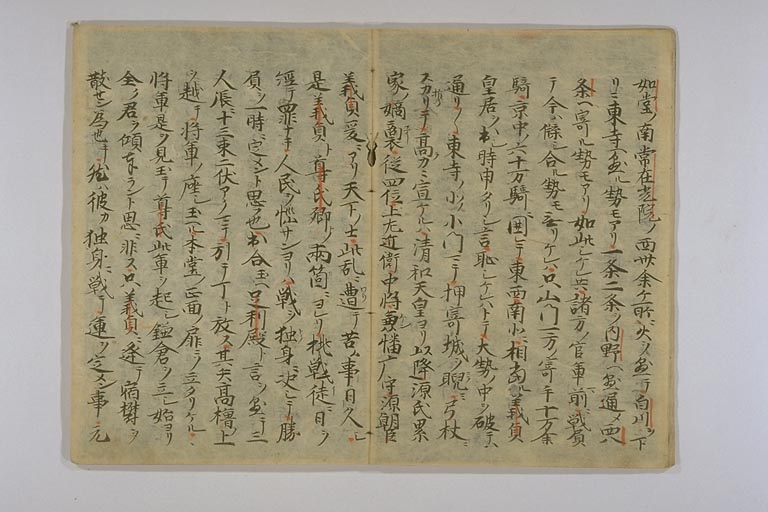 如堂ノ南常在光院ノ西卅余ケ所ニ火ヲ出テ白川ヲ下
リニ東寺ヘ出ル勢モアリ一条二条ノ内野ヘ出通メ西八
条ヘ寄ル勢モアリ如此シケレ共諸方ノ官軍前ノ戦負
テ今ハ降合ル勢モ無リケレハ只山門一方ノ寄手十万余
騎京中ノ六十万騎ニ囲レテ東西南北ニ相当ル義貞
皇居ヲ出シ時申タリシ言恥シケレハトテ大勢ノ中ヲ破テハ
通リ〳〵東寺ノ小門ニテ押寄城ヲ睨ミ弓杖ニ
スカリテ高カニ宣ケルハ清和天皇ヨリ以降源氏累
家ノ嫡裏従四位上左近衛中将兼幡ノ守源朝臣
義貞爰ニアリ天下ノ士此乱ニ遭テ苦ム事日久シ
是義貞ト尊氏卿ノ両箇ニヨレリ挑戦徒ニ日ヲ
経テ罪ナキ人民ヲ悩サンヨリハ戦ヲ独身ニ決シテ勝
負ヲ一時ニ定メント思フ也出合玉ヘ足利殿ト言ヲ出テ三
人張ニ十三束二伏アクマテ引テ丁ト放ス其矢高櫓ノ上
ヲ越テ将軍ノ座シ玉ル本堂ノ正面ノ扉ニソ立タリケル
将軍是ヲ見玉テ尊氏此軍ヲ起シ鎌倉ヲ立シ始ヨリ
全ク君ヲ傾奉ラント思ニ非ス只義貞ニ逢テ宿欝ヲ
散センカ為也キ然ハ彼カ独身ニ戦テ運ヲ定メン事ハ元